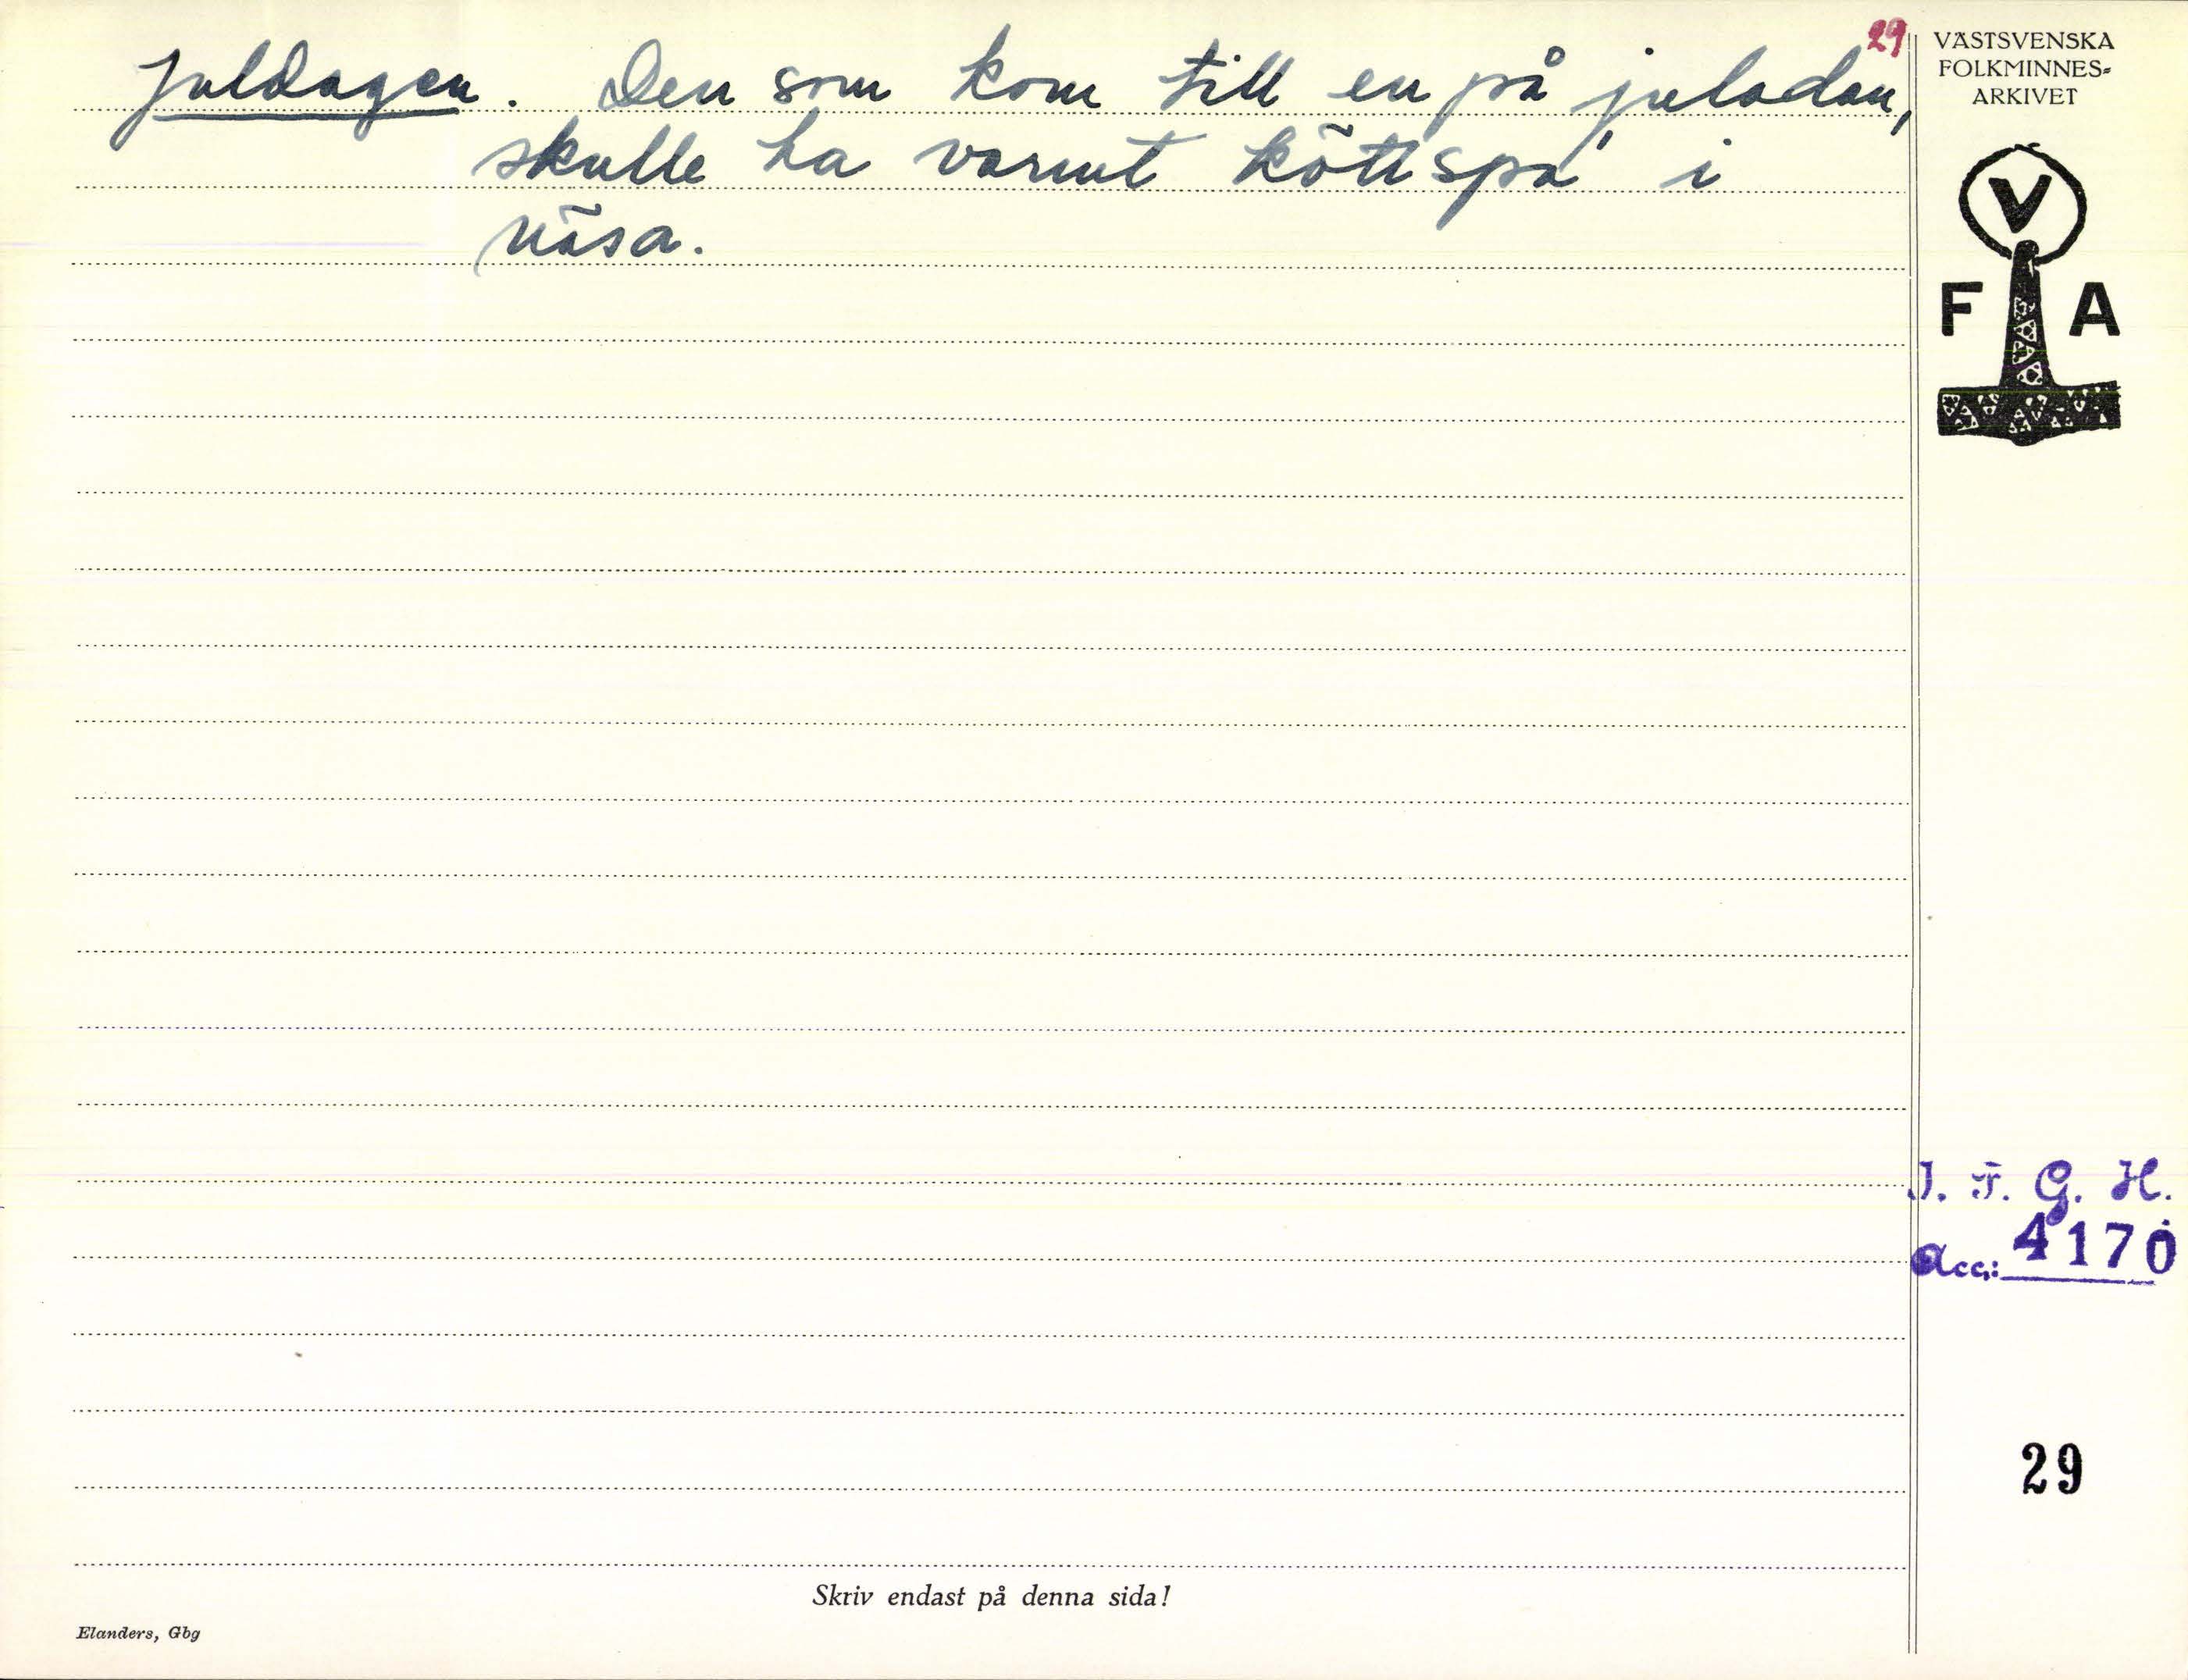 29
Juldagen. Den som kom till en på juladan,
skulle ha varmt köttspa' i
näsa.
VÄSTSVENSKA
FOLKMINNES-
ARKIVET
V
F A
I. F. G. H.
Acc: 4170
29
Skriv endast på denna sida!
Elanders, Gbg